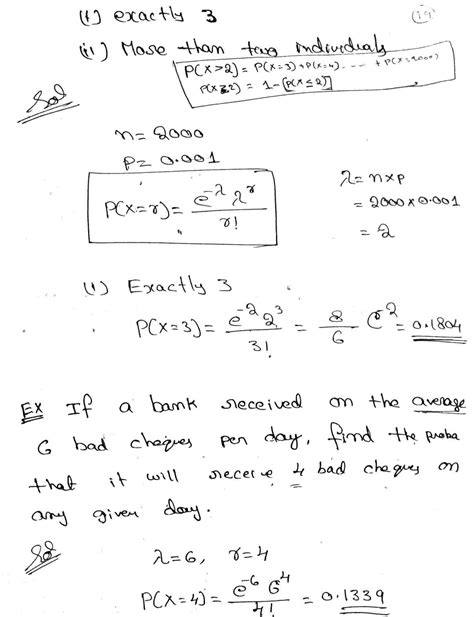 (i) exactly 3
(ii) More than two individuals
P(X>2) = P(X=3)+P(X=4) .... + P(X=2000)
P(X≥2) = 1-[P(X≤2)]
Sol
n = 2000
p = 0.001
λ = n×p
= 2000×0.001
= 2
P(X=r) = e^-λ λ^r / r!
(i) Exactly 3
P(X=3) = e^-2 2^3 / 3! = 8/6 e^2 = 0.1804
EX If a bank received on the average
6 bad cheques per day, find the proba
that it will receive 4 bad cheques on
any given day.
Sol
λ=6, r=4
P(X=4) = e^-6 6^4 / 4! = 0.1339